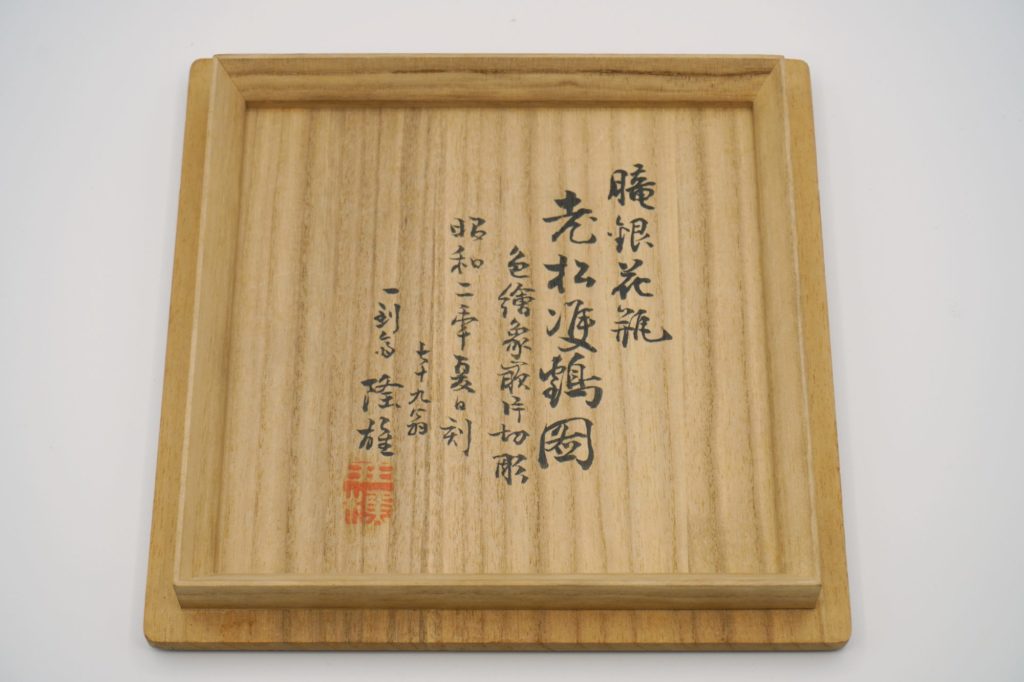 朧銀花瓶
老松雙鶴圖
色繪象嵌片切彫
昭和二年夏日刻
七十九翁
一到斎 隆雄